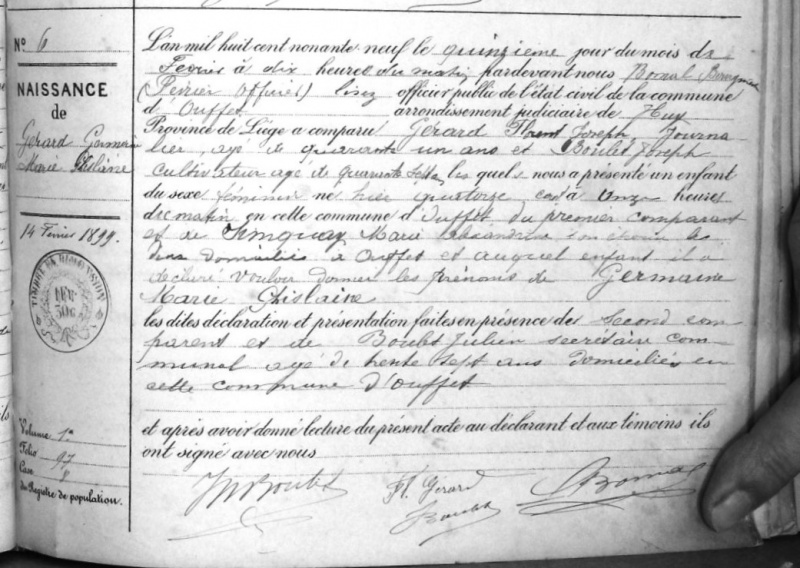 N° 6
NAISSANCE
de
Gérard Germaine
Marie Ghislaine
14 Février 1899.
TIMBRE DE DIMENSION
50c
Volume 1er
Folio 97
Case 8
du Registre de population.
L'an mil huit cent nonante neuf le quinzieme jour du mois de
Fevrier à dix heures du matin pardevant nous Bonal
(Fevrier officier) lisez officier public de l'état civil de la commune
d'Ouffet arrondissement judiciaire de Huy
Province de Liège a comparu Gérard Florent Joseph Journa
lier, agé de quarante un ans et Boulet Joseph
cultivateur agé de quarante sept, les quels nous a présenté un enfant
du sexe féminin né hier quatorze à onze heures
du matin en cette commune d'Ouffet du premier comparant
et de Marie Alexandrine son épouse les
deux domiciliés à Ouffet et auquel enfant il a
declaré vouloir donner les prénoms de Germaine
Marie Ghislaine
les dites déclaration et présentation faites en présence de second com
parent et de Boulet Julien secrétaire com
munal agé de trente sept ans domiciliés en
cette commune d'Ouffet
et après avoir donné lecture du présent acte au déclarant et aux témoins ils
ont signé avec nous
Boulet Fl. Gerard
Boulet